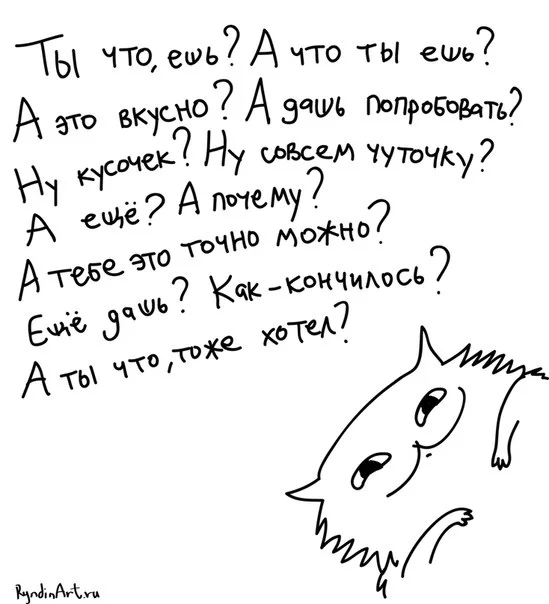 Ты что, ешь? А что ты ешь?
А это вкусно? А дашь попробовать?
Ну кусочек? Ну совсем чуточку?
А ещё? А почему?
А тебе это точно можно?
Ещё дашь? Как-кончилось?
А ты что, тоже хотел?
RyndinArt.ru